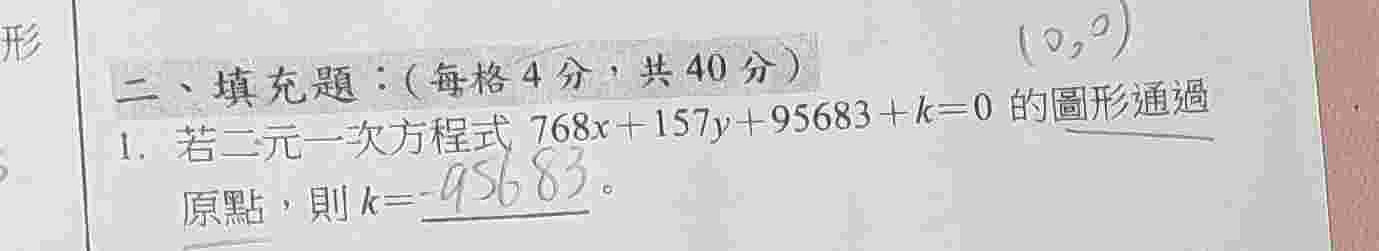 形
(0,0)
二、填充題：(每格 4 分，共 40 分)
1. 若二元一次方程式 768x+157y+95683+k=0 的圖形通過
原點，則 k=-95683。